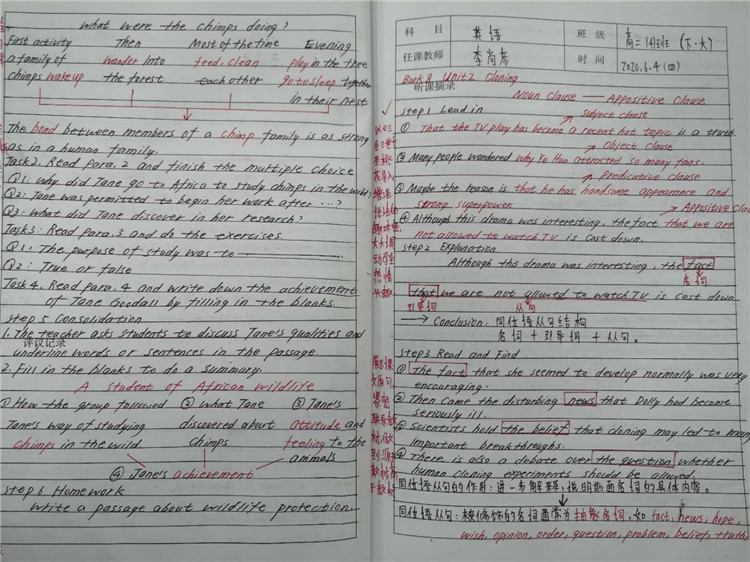 What were the chimps doing?
First activity Then Most of the time Evening
a family of wander into feed, clean play in the tree
chimps wake up the forest each other go to sleep together
in their nest
The bond between members of a chimp family is as strong
as in a human family.
Task2. Read para. 2 and finish the multiple choice
Q1: why did Jane go to Africa to study chimps in the wild
Q2: Jane was permitted to begin her work after ...?
Q3: what did Jane discover in her research?
Task3: Read para. 3 and do the exercises.
Q1: The purpose of study was to
Q2: True or false
Task 4. Read para. 4 and write down the achievement
of Jane Goodall by filling in the blanks.
step 5 Consolidation
1. The teacher asks students to discuss Jane's qualities and
评议记录
underline words or sentences in the passage.
2. Fill in the blanks to do a summary.
A student of African wildlife
① How the group followed ② what Jane ③ Jane's
Jane's way of studying discovered about Attitude and
chimps in the wild. Chimps feeling to the
animals
④ Jane's achievement
step 6 Homework
Write a passage about wildlife protection.
科目 英语 班级 高二14班 (下·大)
任课教师 李尚彦 时间 2020.6.4 (四)
Book 8 Unit 2 Cloning
听课摘录
Noun Clause — Appositive Clause
step 1 Lead in
Subject clause
① That the TV play has become a recent hot topic is a truth.
Object Clause
② Many people wondered why Xu Hao attracted so many fans.
Predicative clause
③ Maybe the reason is that he has handsome appearance and
strong superpower
Appositive Clau
④ Although this drama was interesting, the fact that we are
not allowed to watch TV is cast down.
step 2 Explanation
Although this drama was interesting, the fact
名词
that we are not allowed to watch TV is cast down
引导词 从句
→ Conclusion: 同位语从句结构
名词 + 引导词 + 从句。
step 3 Read and Find
① The fact that she seemed to develop normally was very
encouraging.
② Then came the disturbing news that Dolly had become
seriously ill.
③ Scientists hold the belief that cloning may led to many
important breakthroughs.
④ There is also a debate over the question whether
human cloning experiments should be allowed.
同位语从句的作用: 进一步解释, 说明前面名词的具体内容。
同位语从句: 被修饰的名词通常为抽象名词, 如 fact, news, hope,
wish, opinion, order, question, problem, belief, truth